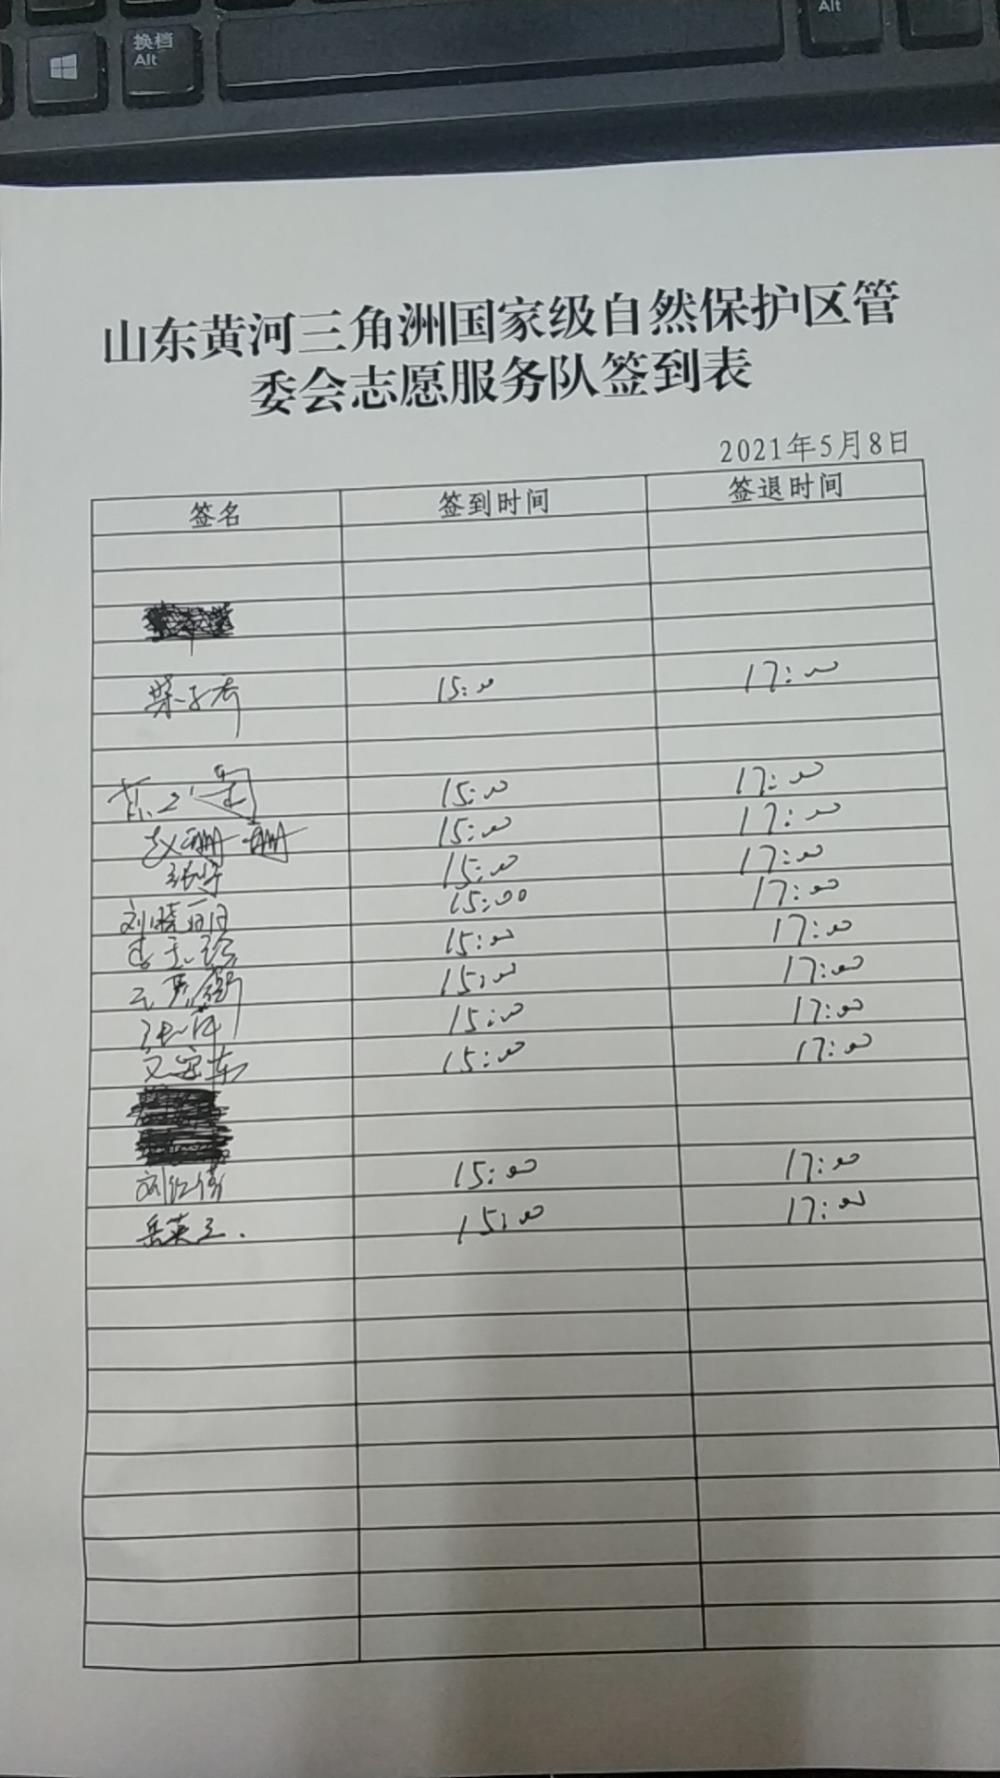 换档
Alt
Alt
山东黄河三角洲国家级自然保护区管
委会志愿服务队签到表
2021年5月8日
签名 签到时间 签退时间
15:00 17:00
15:00 17:00
赵珊珊 15:00 17:00
张宇 15:00 17:00
刘晓丽 15:00 17:00
李玉珍 15:00 17:00
15:00 17:00
15:00 17:00
15:00 17:00
15:00 17:00
岳英立. 15:00 17:00